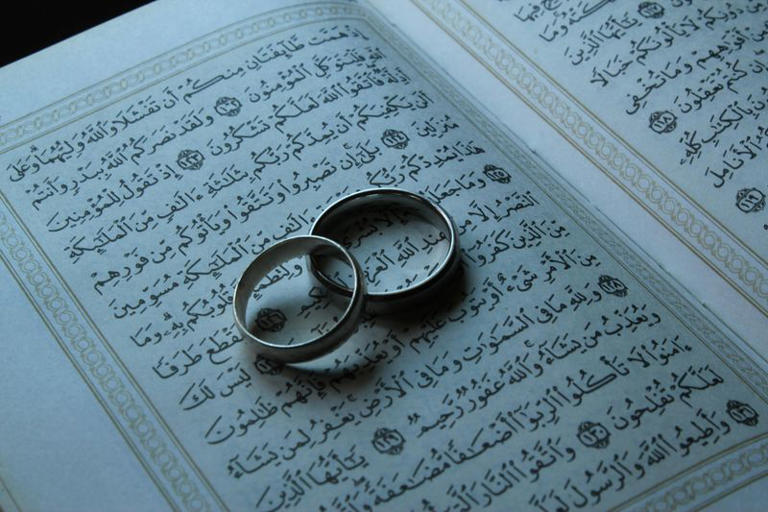 وَدُّوا۟ مَا
يَـٰٓأَيُّهَا ٱلَّذِينَ
لَا يَأْلُونَكُمْ خَبَالًا
أَفْوَٰهِهِمْ وَمَا تُخْفِى
كُنتُمْ تَعْقِلُونَ ١١٨
بِٱلْكِتَـٰبِ كُلِّهِۦ
ٱلْأَنَامِلَ
١١٩
إِذْ هَمَّت طَّآئِفَتَانِ مِنكُمْ أَن تَفْشَلَا وَٱللَّهُ وَلِيُّهُمَا وَعَلَى
ٱللَّهِ فَلْيَتَوَكَّلِ ٱلْمُؤْمِنُونَ ١٢٢ وَلَقَدْ نَصَرَكُمُ ٱللَّهُ بِبَدْرٍ وَأَنتُمْ
أَذِلَّةٌ فَٱتَّقُوا۟ ٱللَّهَ لَعَلَّكُمْ تَشْكُرُونَ ١٢٣ إِذْ تَقُولُ لِلْمُؤْمِنِينَ
أَلَن يَكْفِيَكُمْ أَن يُمِدَّكُمْ رَبُّكُم بِثَلَـٰثَةِ ءَالَـٰفٍ مِّنَ ٱلْمَلَـٰٓئِكَةِ
مُنزَلِينَ ١٢٤ بَلَىٰٓ إِن تَصْبِرُوا۟ وَتَتَّقُوا۟ وَيَأْتُوكُم مِّن فَوْرِهِمْ
هَـٰذَا يُمْدِدْكُمْ رَبُّكُم ءَالَـٰفٍ مِّنَ ٱلْمَلَـٰٓئِكَةِ مُسَوِّمِينَ
١٢٥ وَمَا جَعَلَهُ إِلَّا بُشْرَىٰ وَلِتَطْمَئِنَّ قُلُوبُكُم بِهِۦ وَمَا
ٱلنَّصْرُ إِلَّا مِنْ عِندِ ٱللَّهِ ٱلْعَزِيزِ ٱلْحَكِيمِ ١٢٦ لِيَقْطَعَ طَرَفًا
مِّنَ ٱلَّذِينَ كَفَرُوٓا۟ ١٢٧ لَيْسَ لَكَ
مِنَ ٱلْأَمْرِ شَىْءٌ أَوْ يَتُوبَ عَلَيْهِمْ أَوْ يُعَذِّبَهُمْ فَإِنَّهُمْ ظَـٰلِمُونَ
١٢٨ وَلِلَّهِ مَا فِى ٱلسَّمَـٰوَٰتِ وَمَا فِى ٱلْأَرْضِ يَغْفِرُ لِمَن يَشَآءُ
وَيُعَذِّبُ مَن يَشَآءُ وَٱللَّهُ غَفُورٌ رَّحِيمٌ ١٢٩ يَـٰٓأَيُّهَا ٱلَّذِينَ
ءَامَنُوا۟ لَا تَأْكُلُوا۟ ٱلرِّبَوٰٓا۟ أَضْعَـٰفًا مُّضَـٰعَفَةً وَٱتَّقُوا۟
لَعَلَّكُمْ تُفْلِحُونَ ١٣٠ وَٱتَّقُوا۟ ٱلنَّارَ ٱلَّتِىٓ
١٣١ وَأَطِيعُوا۟ ٱللَّهَ وَٱلرَّسُولَ